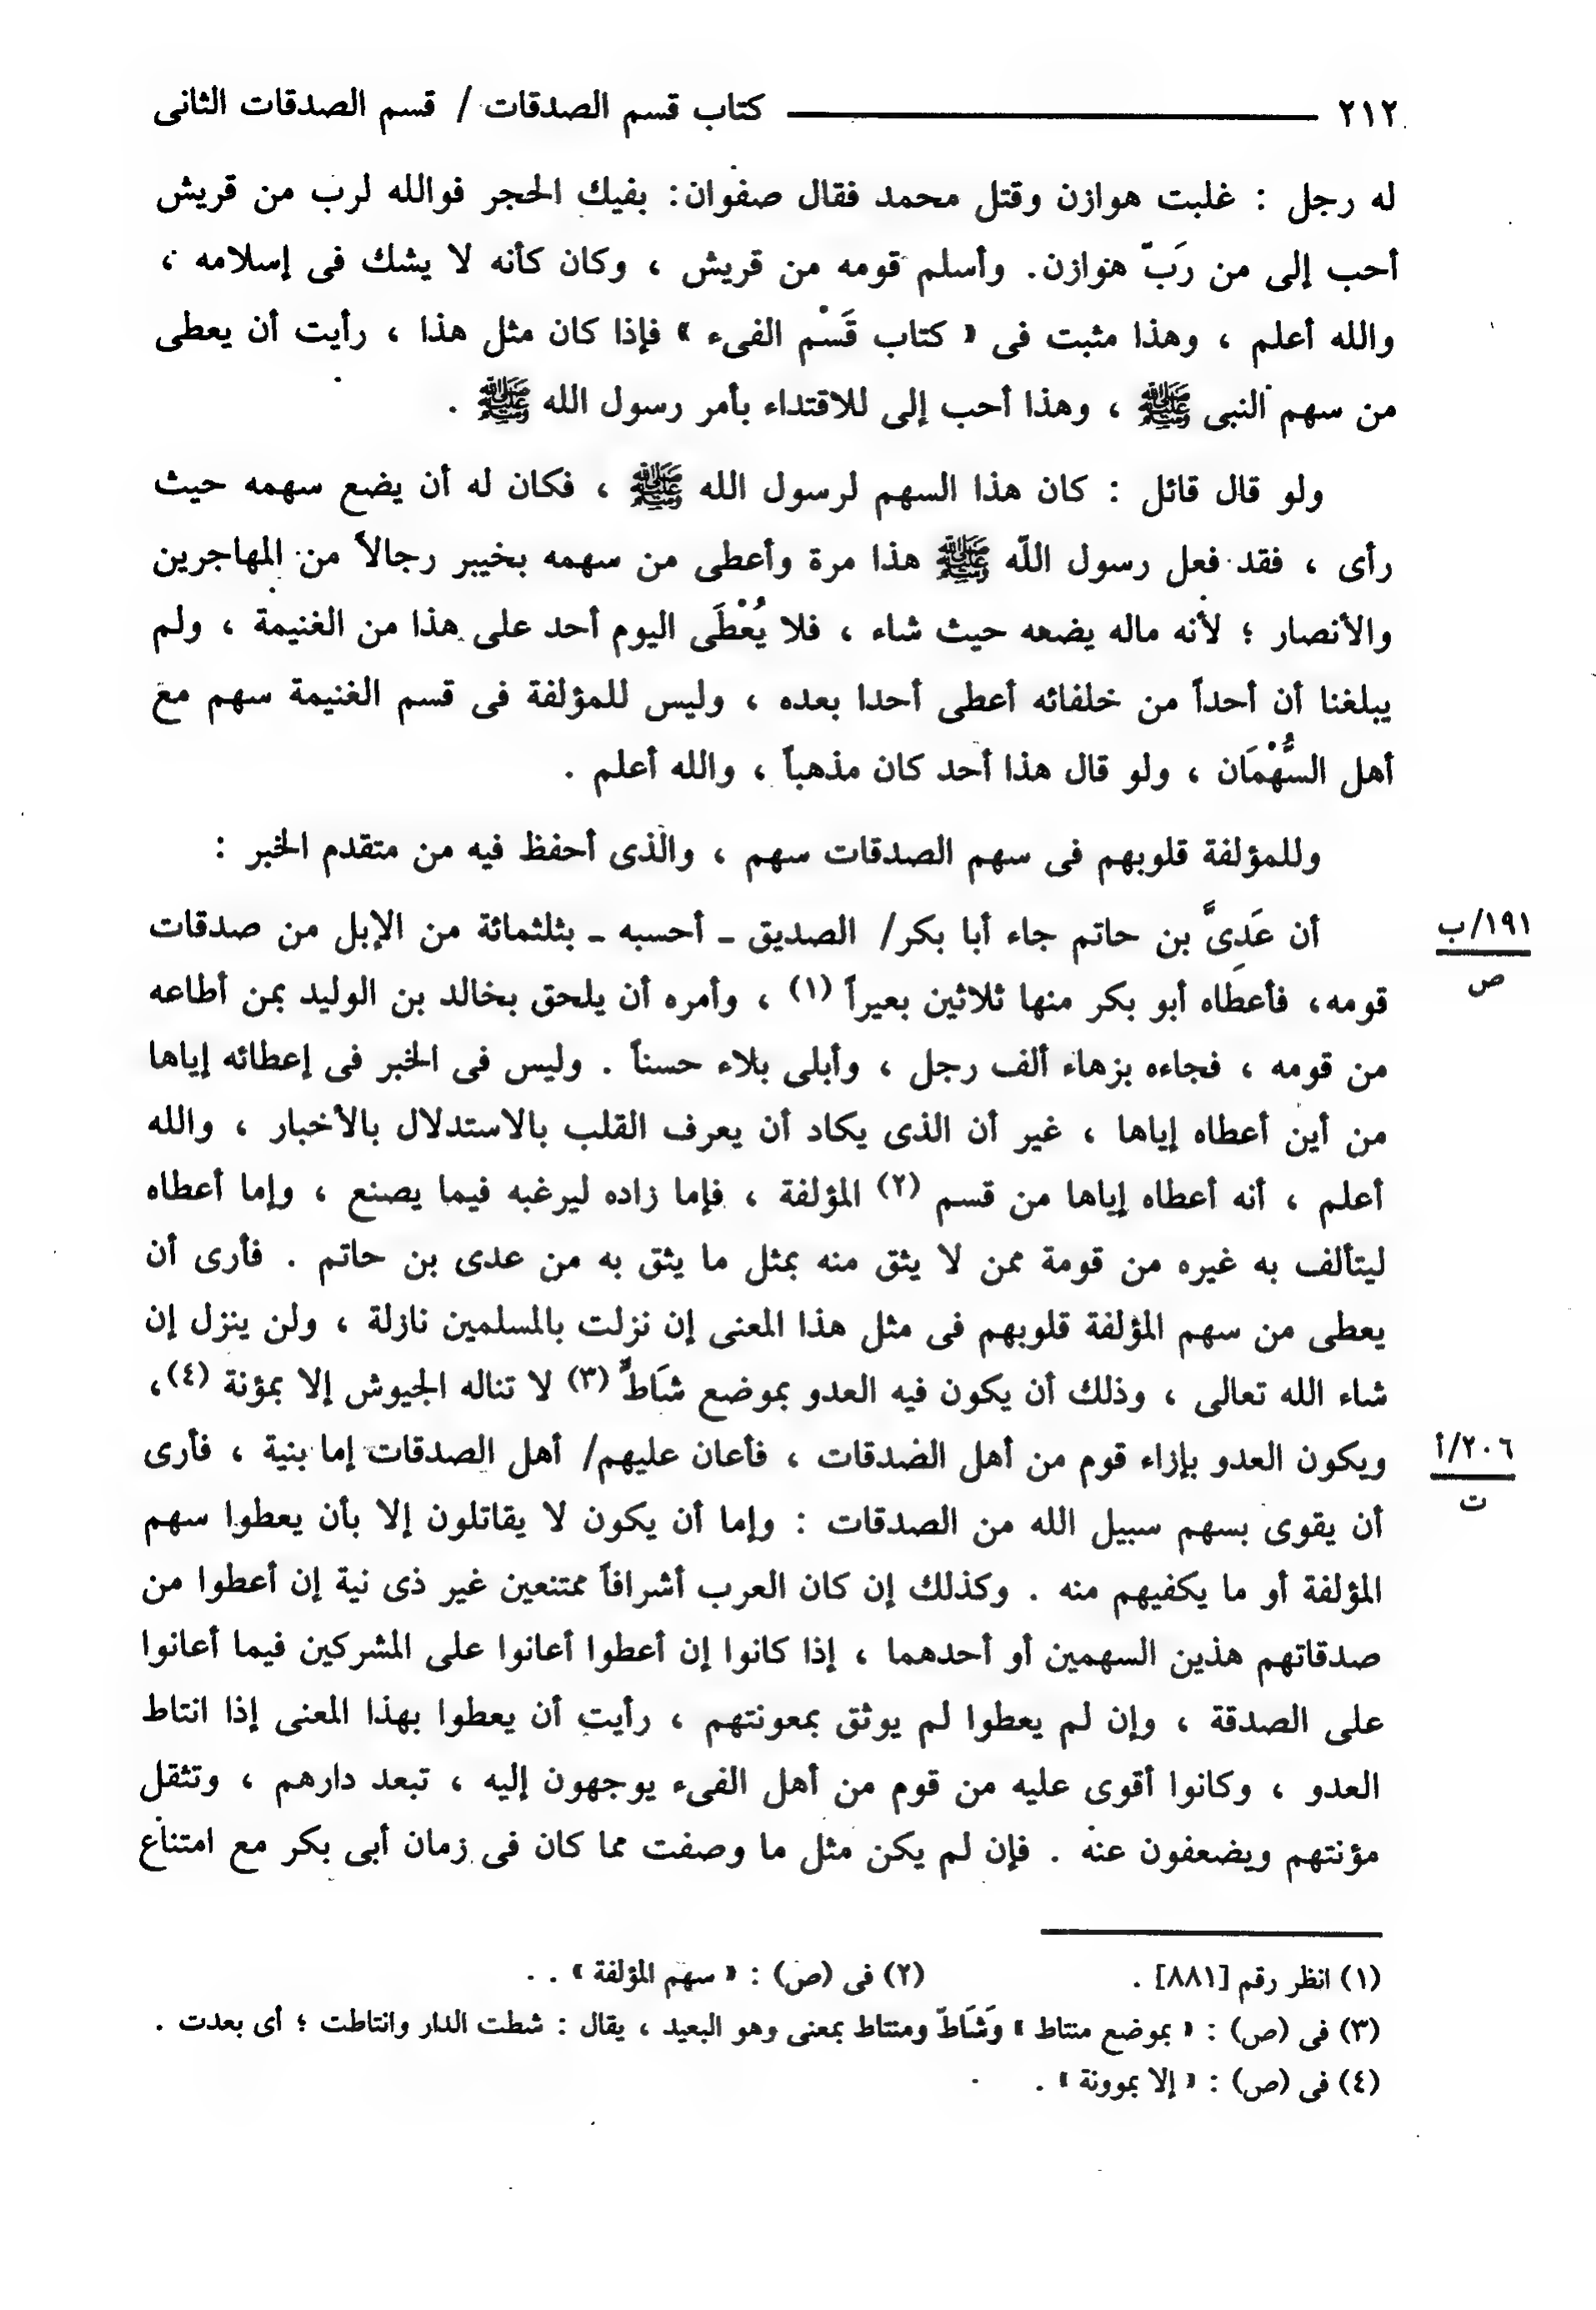 ٢١٢ ـــــــــــــــــــــــــ كتاب قسم الصدقات / قسم الصدقات الثانى
له رجل : غلبت هوازن وقتل محمد فقال صفوان: بفيك الحجر فوالله لرب من قريش
أحب إلى من رَبّ هوازن. وأسلم قومه من قريش ، وكان كأنه لا يشك فى إسلامه ،
والله أعلم ، وهذا مثبت فى « كتاب قَسْم الفىء » فإذا كان مثل هذا ، رأيت أن يعطى
من سهم النبى ﷺ ، وهذا أحب إلى للاقتداء بأمر رسول الله ﷺ .
ولو قال قائل : كان هذا السهم لرسول الله ﷺ ، فكان له أن يضع سهمه حيث
رأى ، فقد فعل رسول اللّه ﷺ هذا مرة وأعطى من سهمه بخيبر رجالاً من المهاجرين
والأنصار ؛ لأنه ماله يضعه حيث شاء ، فلا يُعْطَى اليوم أحد على هذا من الغنيمة ، ولم
يبلغنا أن أحداً من خلفائه أعطى أحدا بعده ، وليس للمؤلفة فى قسم الغنيمة سهم مع
أهل السُّهْمَان ، ولو قال هذا أحد كان مذهباً ، والله أعلم .
وللمؤلفة قلوبهم فى سهم الصدقات سهم ، والذى أحفظ فيه من متقدم الخبر :
أن عَدِىَّ بن حاتم جاء أبا بكر/ الصديق ـ أحسبه ـ بثلثمائة من الإبل من صدقات
١٩١/ب
ص
قومه، فأعطاه أبو بكر منها ثلاثين بعيراً (١) ، وأمره أن يلحق بخالد بن الوليد بمن أطاعه
من قومه ، فجاءه بزهاء ألف رجل ، وأبلى بلاء حسناً . وليس فى الخبر فى إعطائه إياها
من أين أعطاه إياها ، غير أن الذى يكاد أن يعرف القلب بالاستدلال بالأخبار ، والله
أعلم ، أنه أعطاه إياها من قسم (٢) المؤلفة ، فإما زاده ليرغبه فيما يصنع ، وإما أعطاه
ليتألف به غيره من قومة ممن لا يثق منه بمثل ما يثق به من عدى بن حاتم . فأرى أن
يعطى من سهم المؤلفة قلوبهم فى مثل هذا المعنى إن نزلت بالمسلمين نازلة ، ولن ينزل إن
شاء الله تعالى ، وذلك أن يكون فيه العدو بموضع شَاطٍّ (٣) لا تناله الجيوش إلا بمؤنة (٤)،
ويكون العدو بإزاء قوم من أهل الصدقات ، فأعان عليهم/ أهل الصدقات إما بنية ، فأرى
٢٠٦/أ
ت
أن يقوى بسهم سبيل الله من الصدقات : وإما أن يكون لا يقاتلون إلا بأن يعطوا سهم
المؤلفة أو ما يكفيهم منه . وكذلك إن كان العرب أشرافاً ممتنعين غير ذى نية إن أعطوا من
صدقاتهم هذين السهمين أو أحدهما ، إذا كانوا إن أعطوا أعانوا على المشركين فيما أعانوا
على الصدقة ، وإن لم يعطوا لم يوثق بمعونتهم ، رأيت أن يعطوا بهذا المعنى إذا انتاط
العدو ، وكانوا أقوى عليه من قوم من أهل الفىء يوجهون إليه ، تبعد دارهم ، وتثقل
مؤنتهم ويضعفون عنه . فإن لم يكن مثل ما وصفت مما كان فى زمان أبى بكر مع امتناع
(١) انظر رقم [٨٨١] . (٢) فى (ص) : « سهم المؤلفة » .
(٣) فى (ص) : « بموضع منتاط » وَشَاطّ ومنتاط بمعنى وهو البعيد ، يقال : شطت الدار وانتاطت ؛ أى بعدت .
(٤) فى (ص) : « إلا بموونة » .